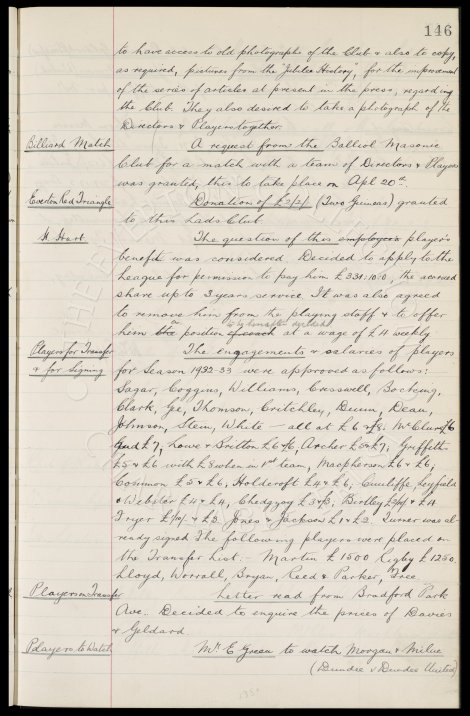 146
to have access to old photographs of the Club & also to copy,
as required, pictures from the "Jubilee History", for the improvement
of the series of articles at present in the press, regarding
the Club. They also desired to take a photograph of the
Directors & Players together.
Billiard Match A request from the Balliol Masonic
Club for a match with a team of Directors & Players
was granted, this to take place on Apl 20th.
Everton Red Triangle Donation of £2/2/- (Two Guineas) granted
to this Lads Club.
W. Hart The question of this employee's player's
benefit was considered Decided to apply to the
League for permission to pay him £331:10:0, the accrued
share up to 3 years service. It was also agreed
to remove him from the playing staff & to offer
him the position of coach at a wage of £4 weekly
Players for Transfer The engagements & salaries of players
& for Signing for Season 1932-33 were approved as follows:
Sagar, Coggins, Williams, Cresswell, Bocking,
Clark, Gee, Thomson, Critchley, Dunn, Dean,
Johnson, Stein, White - all at £6 & £8; McClure £6
and £7, Lowe & Britton £6 £6, Archer £5 & £7; Griffiths
£5 & £6 with £8 when in 1st team, Macpherson £6 & £6,
Common £5 & £6, Holdcroft £4 & £6; Cunliffe,
& Webster £4 & £4, Chedgzoy £3 £3, Birtley & £4
Fryer & £3 Jones & Jackson £1 & £2. Turner was al-
ready signed The following players were placed on
the Transfer List:- Martin £1500 Rigby £1250,
Lloyd, Worrall, Bryan, Reed & Parker, Free
Players on Transfer Letter read from Bradford Park
Ave.. Decided to enquire the prices of Davies
& Geldard
Players to Watch Mr E Green to watch Morgan & Milne
(Dundee v Dundee United)